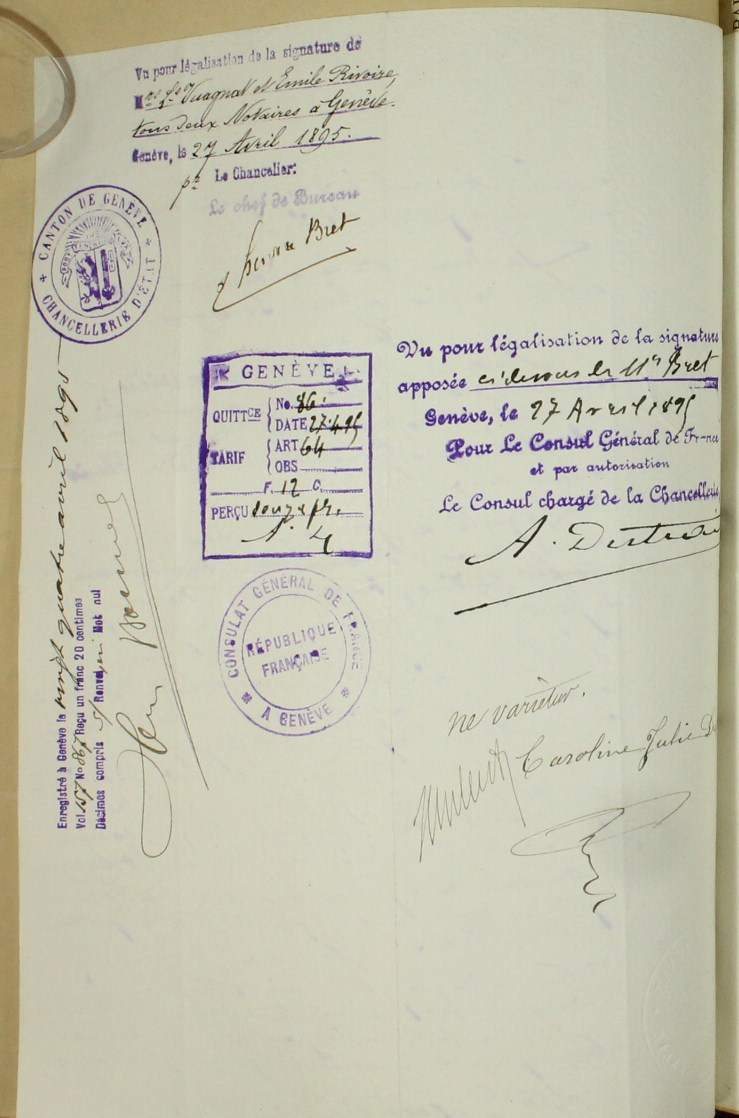 Vu pour légalisation de la signature de
Mes Vuagnat et Emile Rivoire
tous deux Notaires à Genève.
Genève, le 27 Avril 1895.
pr Le Chancelier:
Le chef de Bureau
Bret
CANTON DE GENÈVE
CHANCELLERIE D'ÉTAT
Vu pour légalisation de la signature
apposée ci-dessus de Mr Bret
Genève, le 27 Avril 1895
Pour Le Consul Général de France
et par autorisation
Le Consul chargé de la Chancellerie
A.
GENÈVE
QUITTCE No. 86
DATE 27.4.95
TARIF ART 64
OBS
F. 12 C.
PERÇU douze fr.
CONSULAT GÉNÉRAL DE FRANCE
RÉPUBLIQUE
FRANÇAISE
A GENÈVE
Enregistré à Genève le vingt quatre avril 1895
Vol. 157 No 867 Reçu un franc 20 centimes
Décimes compris Renvoi Mot nul
ne varietur.
Caroline Julie